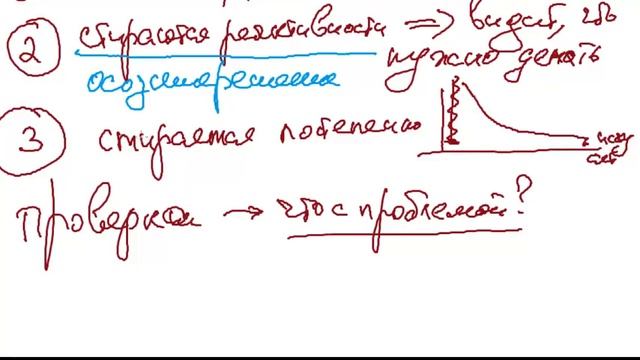 2 стираются реактивности ⇒ видит, что
нужно делать
осозн. решения
3 стирается постепенно
Проверка → что с проблемой?